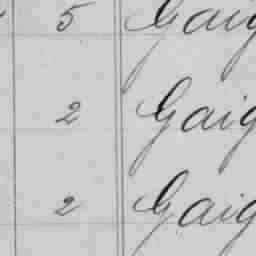 5 Gaig
2 Gaig
2 Gaig